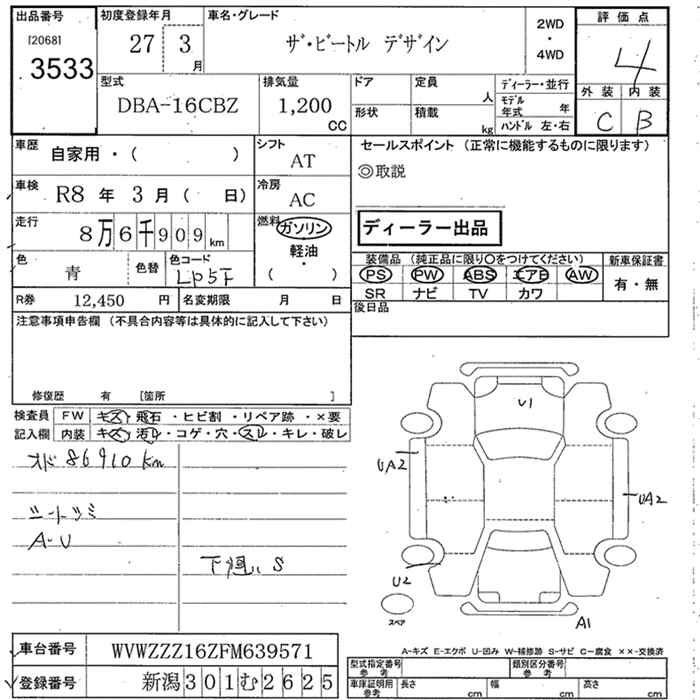 出品番号
[2068]
3533
初度登録年月
27 年 3 月
車名・グレード
ザ・ビートル デザイン
2WD
・
4WD
評価点
4
外装 内装
C B
型式
DBA-16CBZ
排気量
1,200
CC
ドア
形状
定員
人
積載
kg
ディーラー・並行
モデル
年式 年
ハンドル 左・右
車歴
自家用・( )
シフト
AT
車検
R8 年 3 月 ( 日)
冷房
AC
走行
8万6千909 km
燃料
ガソリン
軽油
・
( )
色
青
色替
色コード
LP5F
R券
12,450 円
名変期限 月 日
セールスポイント (正常に機能するものに限ります)
◎取説
ディーラー出品
装備品 (純正品に限り○をつけてください)
PS PW ABS エアB AW
SR ナビ TV カワ
新車保証書
有・無
後日品
注意事項申告欄 (不具合内容等は具体的に記入して下さい)
修復歴 有 [箇所 ]
検査員 FW キズ・飛石・ヒビ割・リペア跡・×要
記入欄 内装 キズ・汚れ・コゲ・穴・スレ・キレ・破レ
オド 86910 km
シートツミ
A-U
S
U1
UA2
UA2
U2
A1
スペア
A-キズ E-エクボ U-凹み W-補修跡 S-サビ C-腐食 ××-交換済
車台番号
WVWZZZ16ZFM639571
登録番号
新潟301む2625
型式指定番号
参考
類別区分番号
参考
車庫証明用
参考
長さ cm
幅 cm
高さ cm